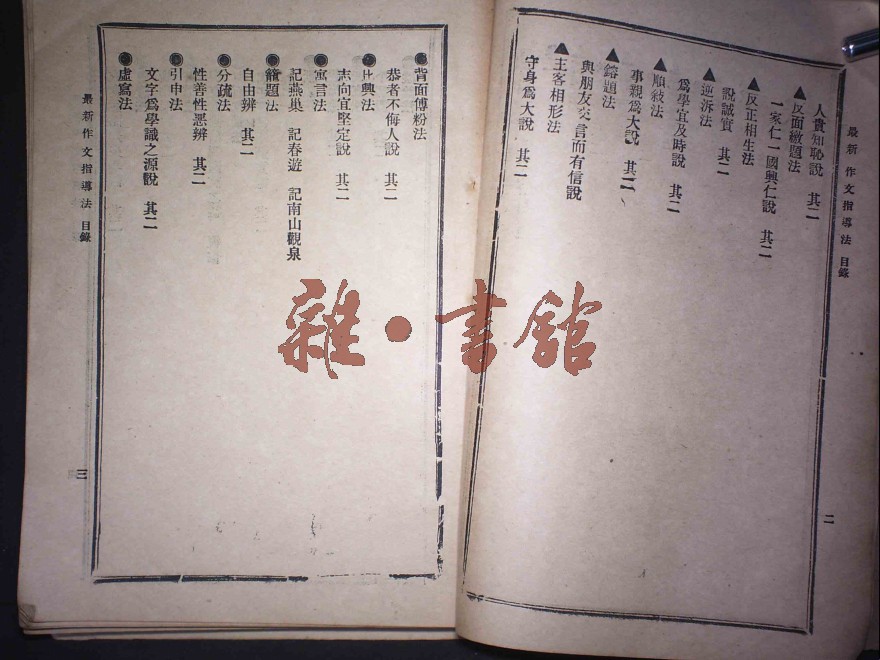 最新作文指導法 目錄
人貴知恥說 其二
▲反面繳題法
一家仁一國興仁說 其二
▲反正相生法
說誠實 其二
▲逆訴法
爲學宜及時說 其二
▲順敍法
事親爲大說 其二
▲鎔題法
與朋友交言而有信說
▲主客相形法
守身爲大說 其二
二
●背面傅粉法
恭者不侮人說 其二
●比興法
志向宜堅定說 其二
●寓言法
記燕巢 記春遊 記南山觀泉
●籠題法
自由辨 其二
●分疏法
性善性惡辨 其二
●引申法
文字爲學識之源說 其二
●虛寫法
最新作文指導法 目錄
三
雜·書館